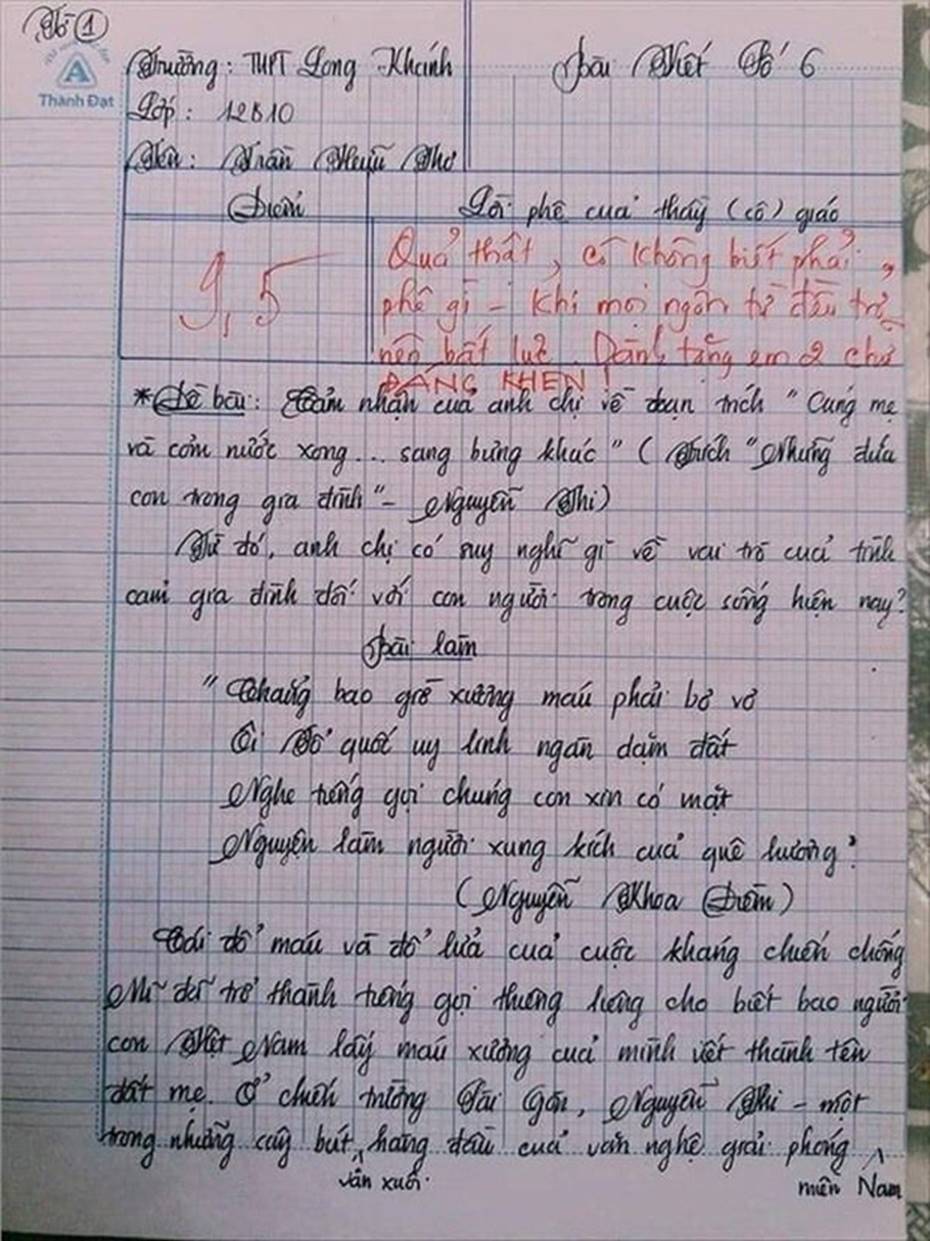 Tờ 1
Thành Đạt
Trường: THPT Long Khánh
Bài Viết Số 6
Lớp: 12B10
Tên: Trần Hữu Thơ
Điểm
Lời phê của thầy (cô) giáo
9,5
Quả thật, cô không biết phải
phê gì - khi mọi ngôn từ đều trở
nên bất lực. Dành tặng em 2 chữ
ĐÁNG KHEN!
*Đề bài: Cảm nhận của anh chị về đoạn trích "Cúng mẹ
và cơm nước xong... sang bưng khác" (Trích "Những đứa
con trong gia đình" - Nguyễn Thi)
Từ đó, anh chị có suy nghĩ gì về vai trò của tình
cảm gia đình đối với con người trong cuộc sống hiện nay?
Bài làm
"Chẳng bao giờ xương máu phải bơ vơ
Ôi Tổ quốc uy linh ngàn dặm đất
Nghe tiếng gọi chúng con xin có mặt
Nguyện làm người xung kích của quê hương"
(Nguyễn Khoa Điềm)
Cái đổ máu và đổ lửa của cuộc kháng chiến chống
Mĩ đã trở thành tiếng gọi thương liêng cho biết bao người
con Việt Nam lấy máu xương của mình viết thành tên
đất mẹ. Ở chiến trường Sài Gòn, Nguyễn Thi - một
trong những cây bút hàng đầu của văn nghệ giải phóng
văn xuôi miền Nam